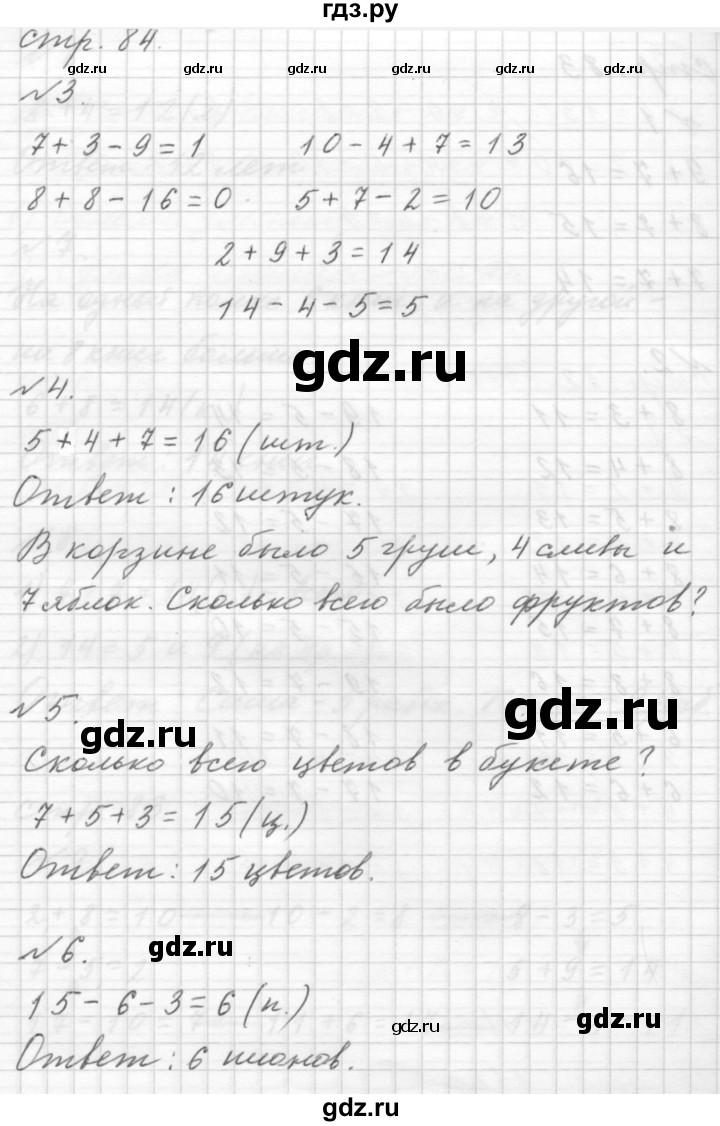 гдз.ру
стр. 84.
gdz.ru gdz.ru gdz.ru gdz.ru gdz.ru
№3.
7+3-9=1 10-4+7=13
8+8-16=0 5+7-2=10
2+9+3=14
14-4-5=5
gdz.ru
№4.
5+4+7=16(шт.)
Ответ: 16 штук.
В корзине было 5 груш, 4 сливы и
7 яблок. Сколько всего было фруктов?
№5.
gdz.ru
gdz.ru
Сколько всего цветов в букете?
7+5+3=15(ц.)
Ответ: 15 цветов.
№6.
gdz.ru
15-6-3=6(п.)
gdz.ru gdz.ru
Ответ: 6 пионов.
gdz.ru